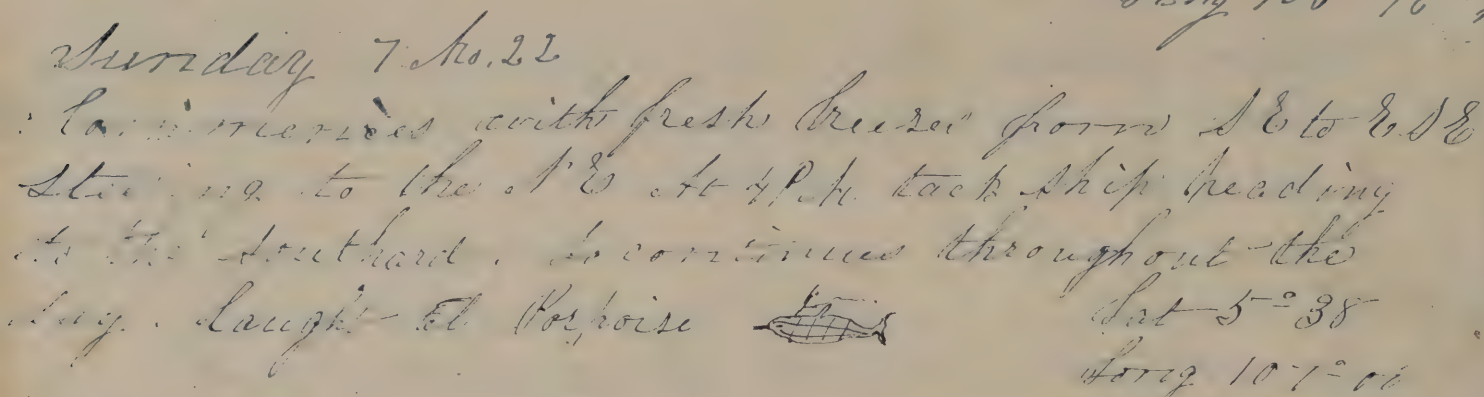 Sunday 7 Mo. 22
Commences with fresh breezes from S E to E S E
steering to the N E At 4 P. M. tack ship heading
to the southard. So continues throughout the
day. Caught El Porpoise Lat 5° 38
Long 107° 01